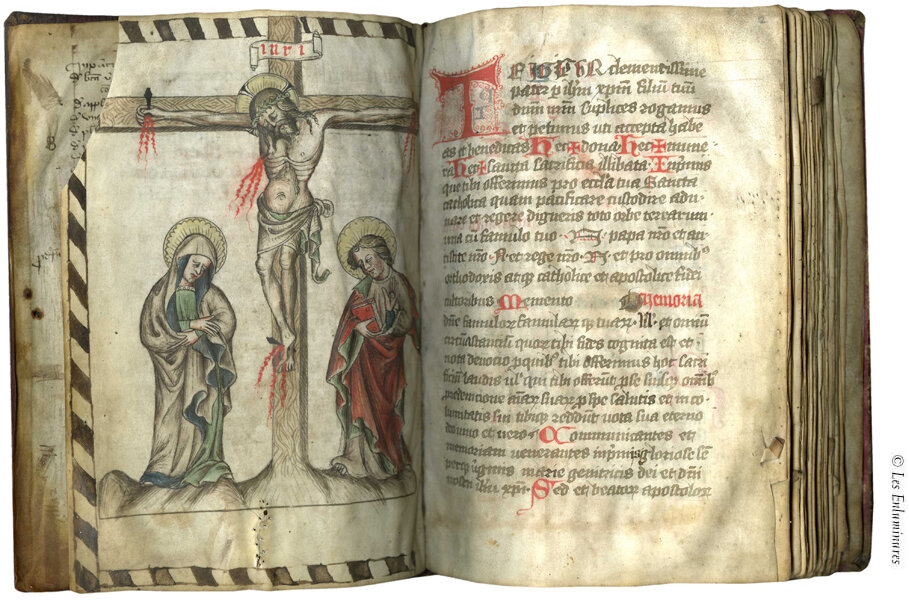 inri
TE IGITUR clementissime
pater p ihm xpm filiu tuu
dnm nrm suplices rogamus
et petimus uti accepta habe
as et benedicas hec dona hec mune
ra hec sancta sacrificia illibata Inpmis
que tibi offerimus pro eccla tua Sancta
catholica quam pacificare custodire adu
nare et regere digneris toto orbe terrarum
una cu famulo tuo papa nro et an
tistite nro N et rege nro N et pro omnib
orthodoxis atq catholice et apostolice fidei
cultoribus Memento memoria
dne famulor famular q tuar N et omiu
circustanciu quor tibi fides cognita est et
nota devocio p quib tibi offerimus hoc sacri
ficiu laudis ul qui tibi offerut p se suisq omib
redemcione aiar suar p spe salutis et inco
lumitatis sue tibiq reddut vota sua eterno
deo vivo et vero Communicantes et
memoriam venerantes inpmis gloriose se
virginis marie genitricis dei et dni
nostri ihu xpi Sed et beator apostolor
© Les Enluminures